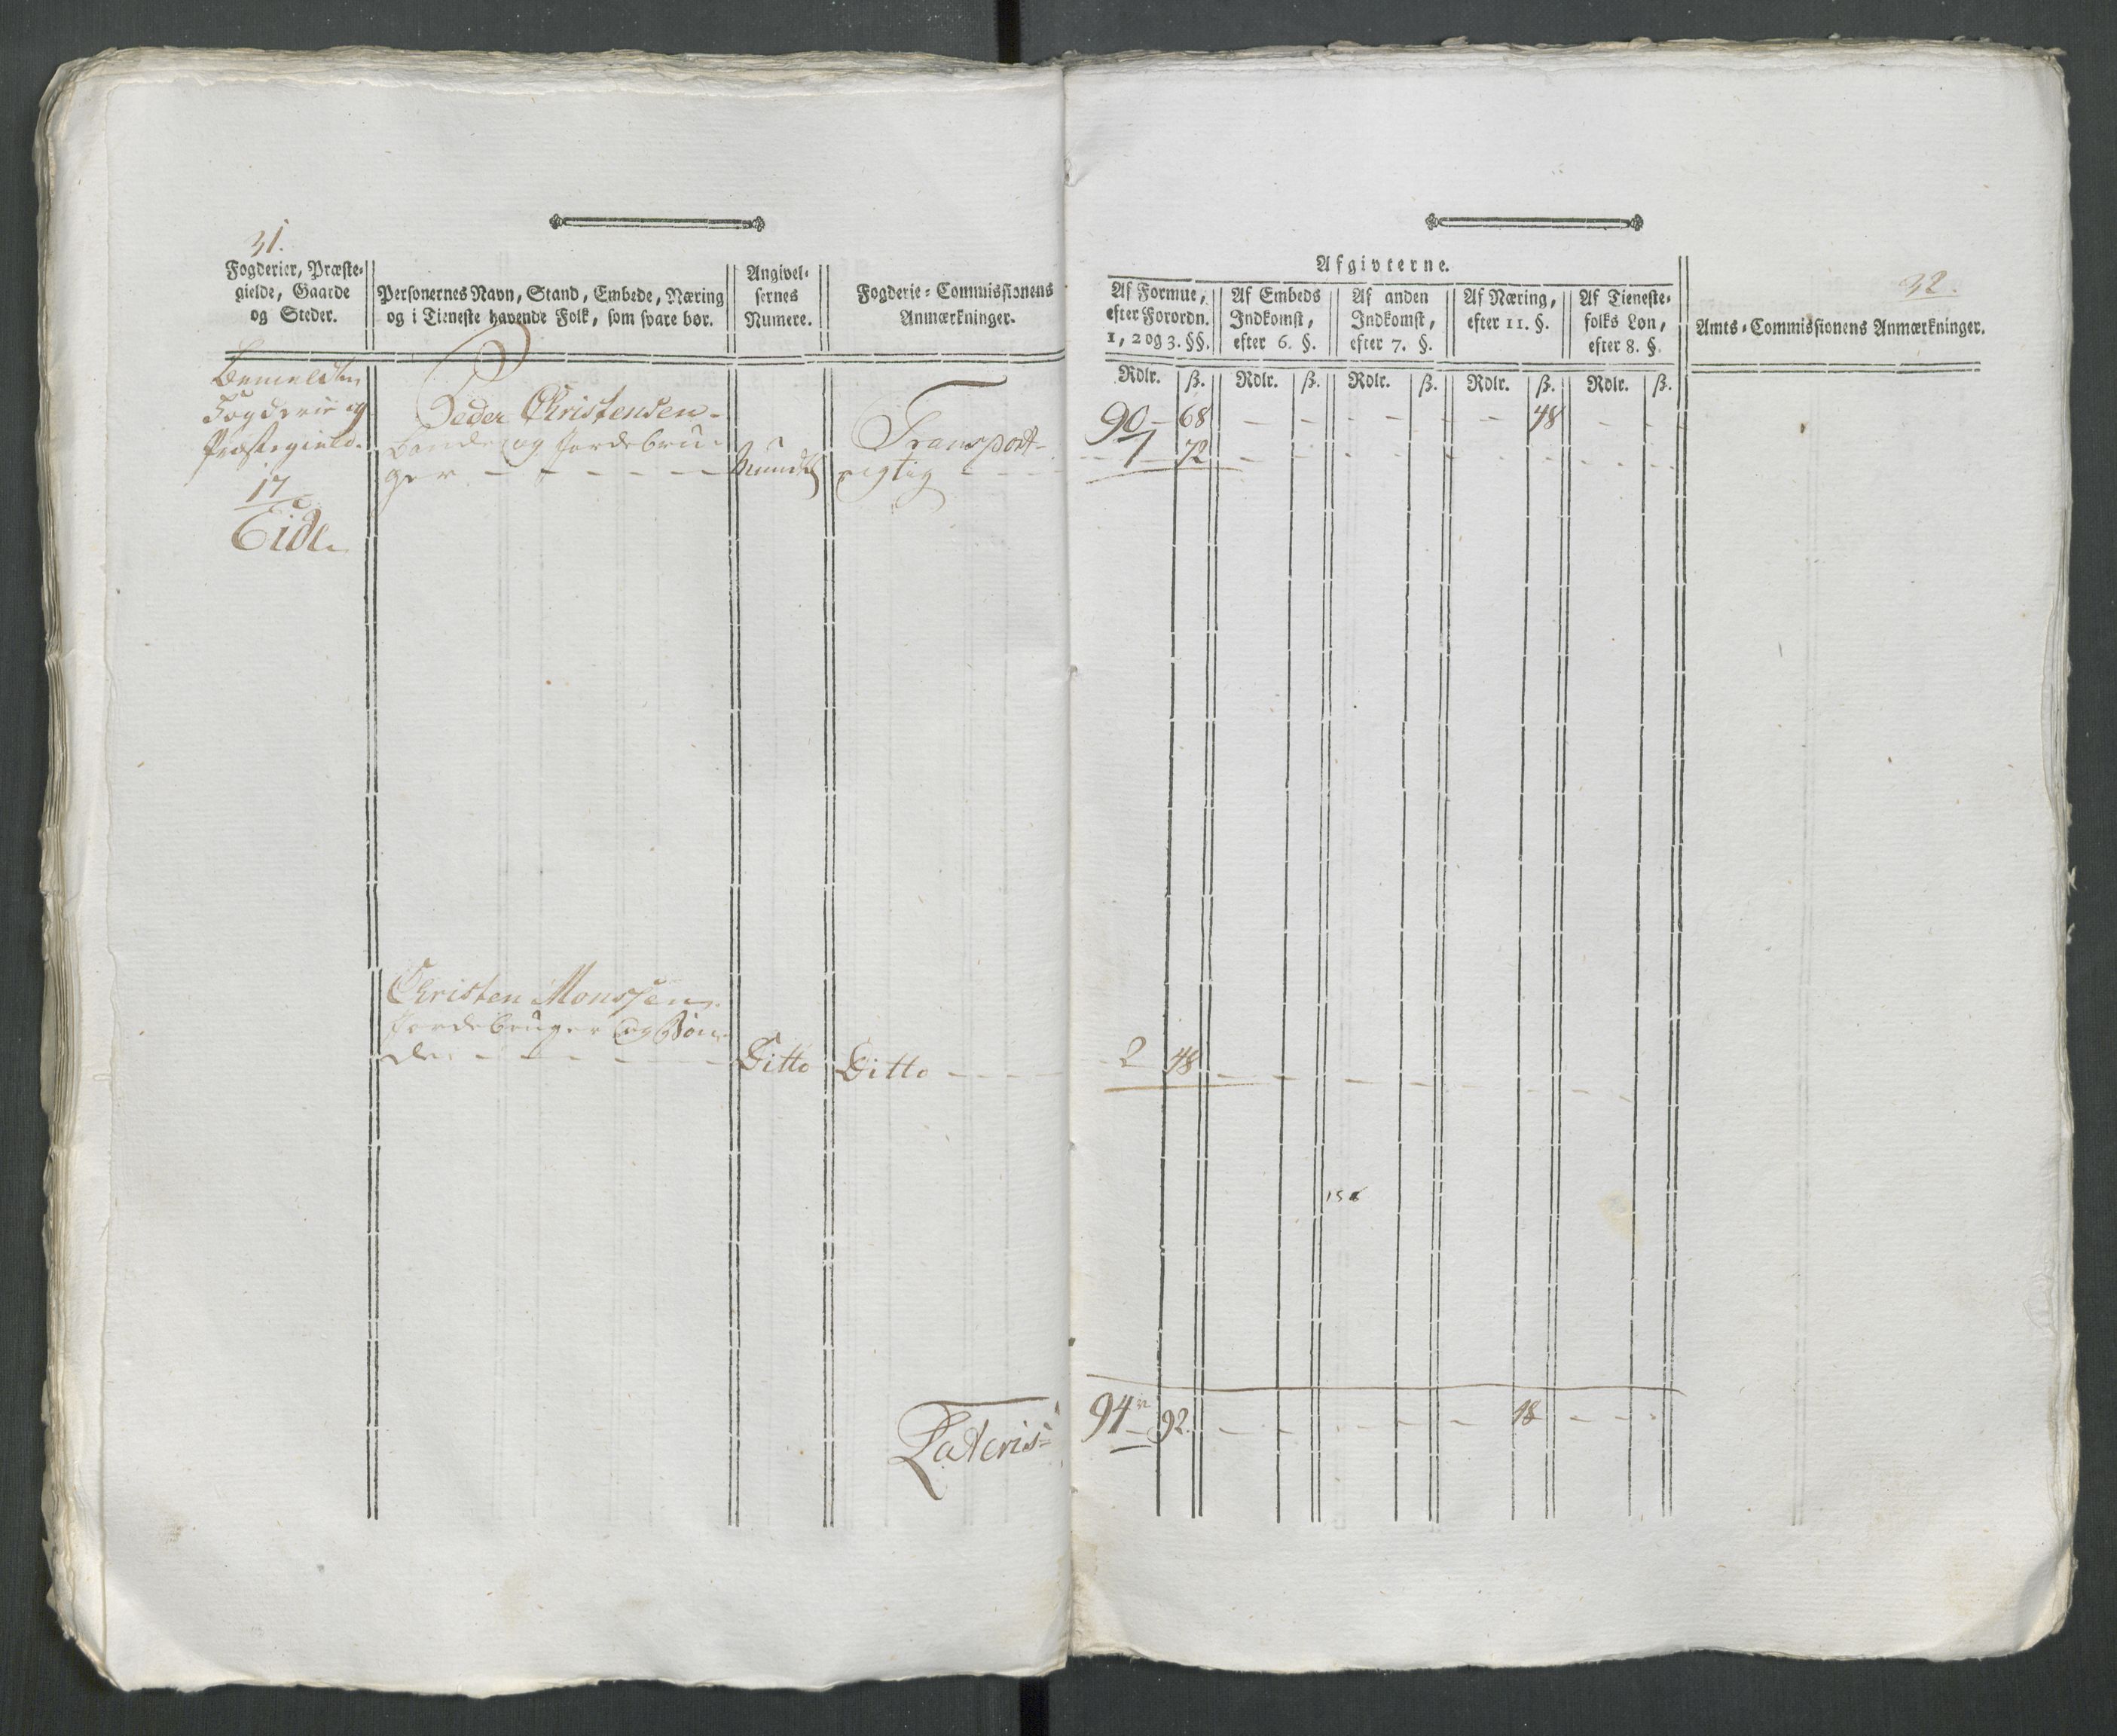 31.
Fogderier, Præste-
gielde, Gaarde
og Steder.
Personernes Navn, Stand, Embede, Næring
og i Tieneste havende Folk, som svare bør.
Angivel-
sernes
Numere.
Fogderie-Commissionens
Anmærkninger.
Bemeldte
Fogderie og
Præstegield.
17
Eide
Peder Christensen-
Bonde og Jordebru-
ger - - - - - -
Mundtl
Transport-
rigtig - - -
Christen Monssen
Jordebruger og Bon-
de - - - - - -
Ditto
Ditto - - -
Lateris
32.
Afgivterne.
Af Formue,
efter Forordn.
1, 2 og 3. §§.
Af Embeds
Indkomst,
efter 6. §.
Af anden
Indkomst,
efter 7. §.
Af Næring,
efter 11. §.
Af Tieneste-
folks Løn,
efter 8. §.
Amts-Commissionens Anmærkninger.
Rdlr. ß. Rdlr. ß. Rdlr. ß. Rdlr. ß. Rdlr. ß.
90 - 68 - - - - - - 48 - - -
1 72 - - - - - - - -
2 48 - - - - - - - -
156
94 - 92. - - - - - - 48 - - -